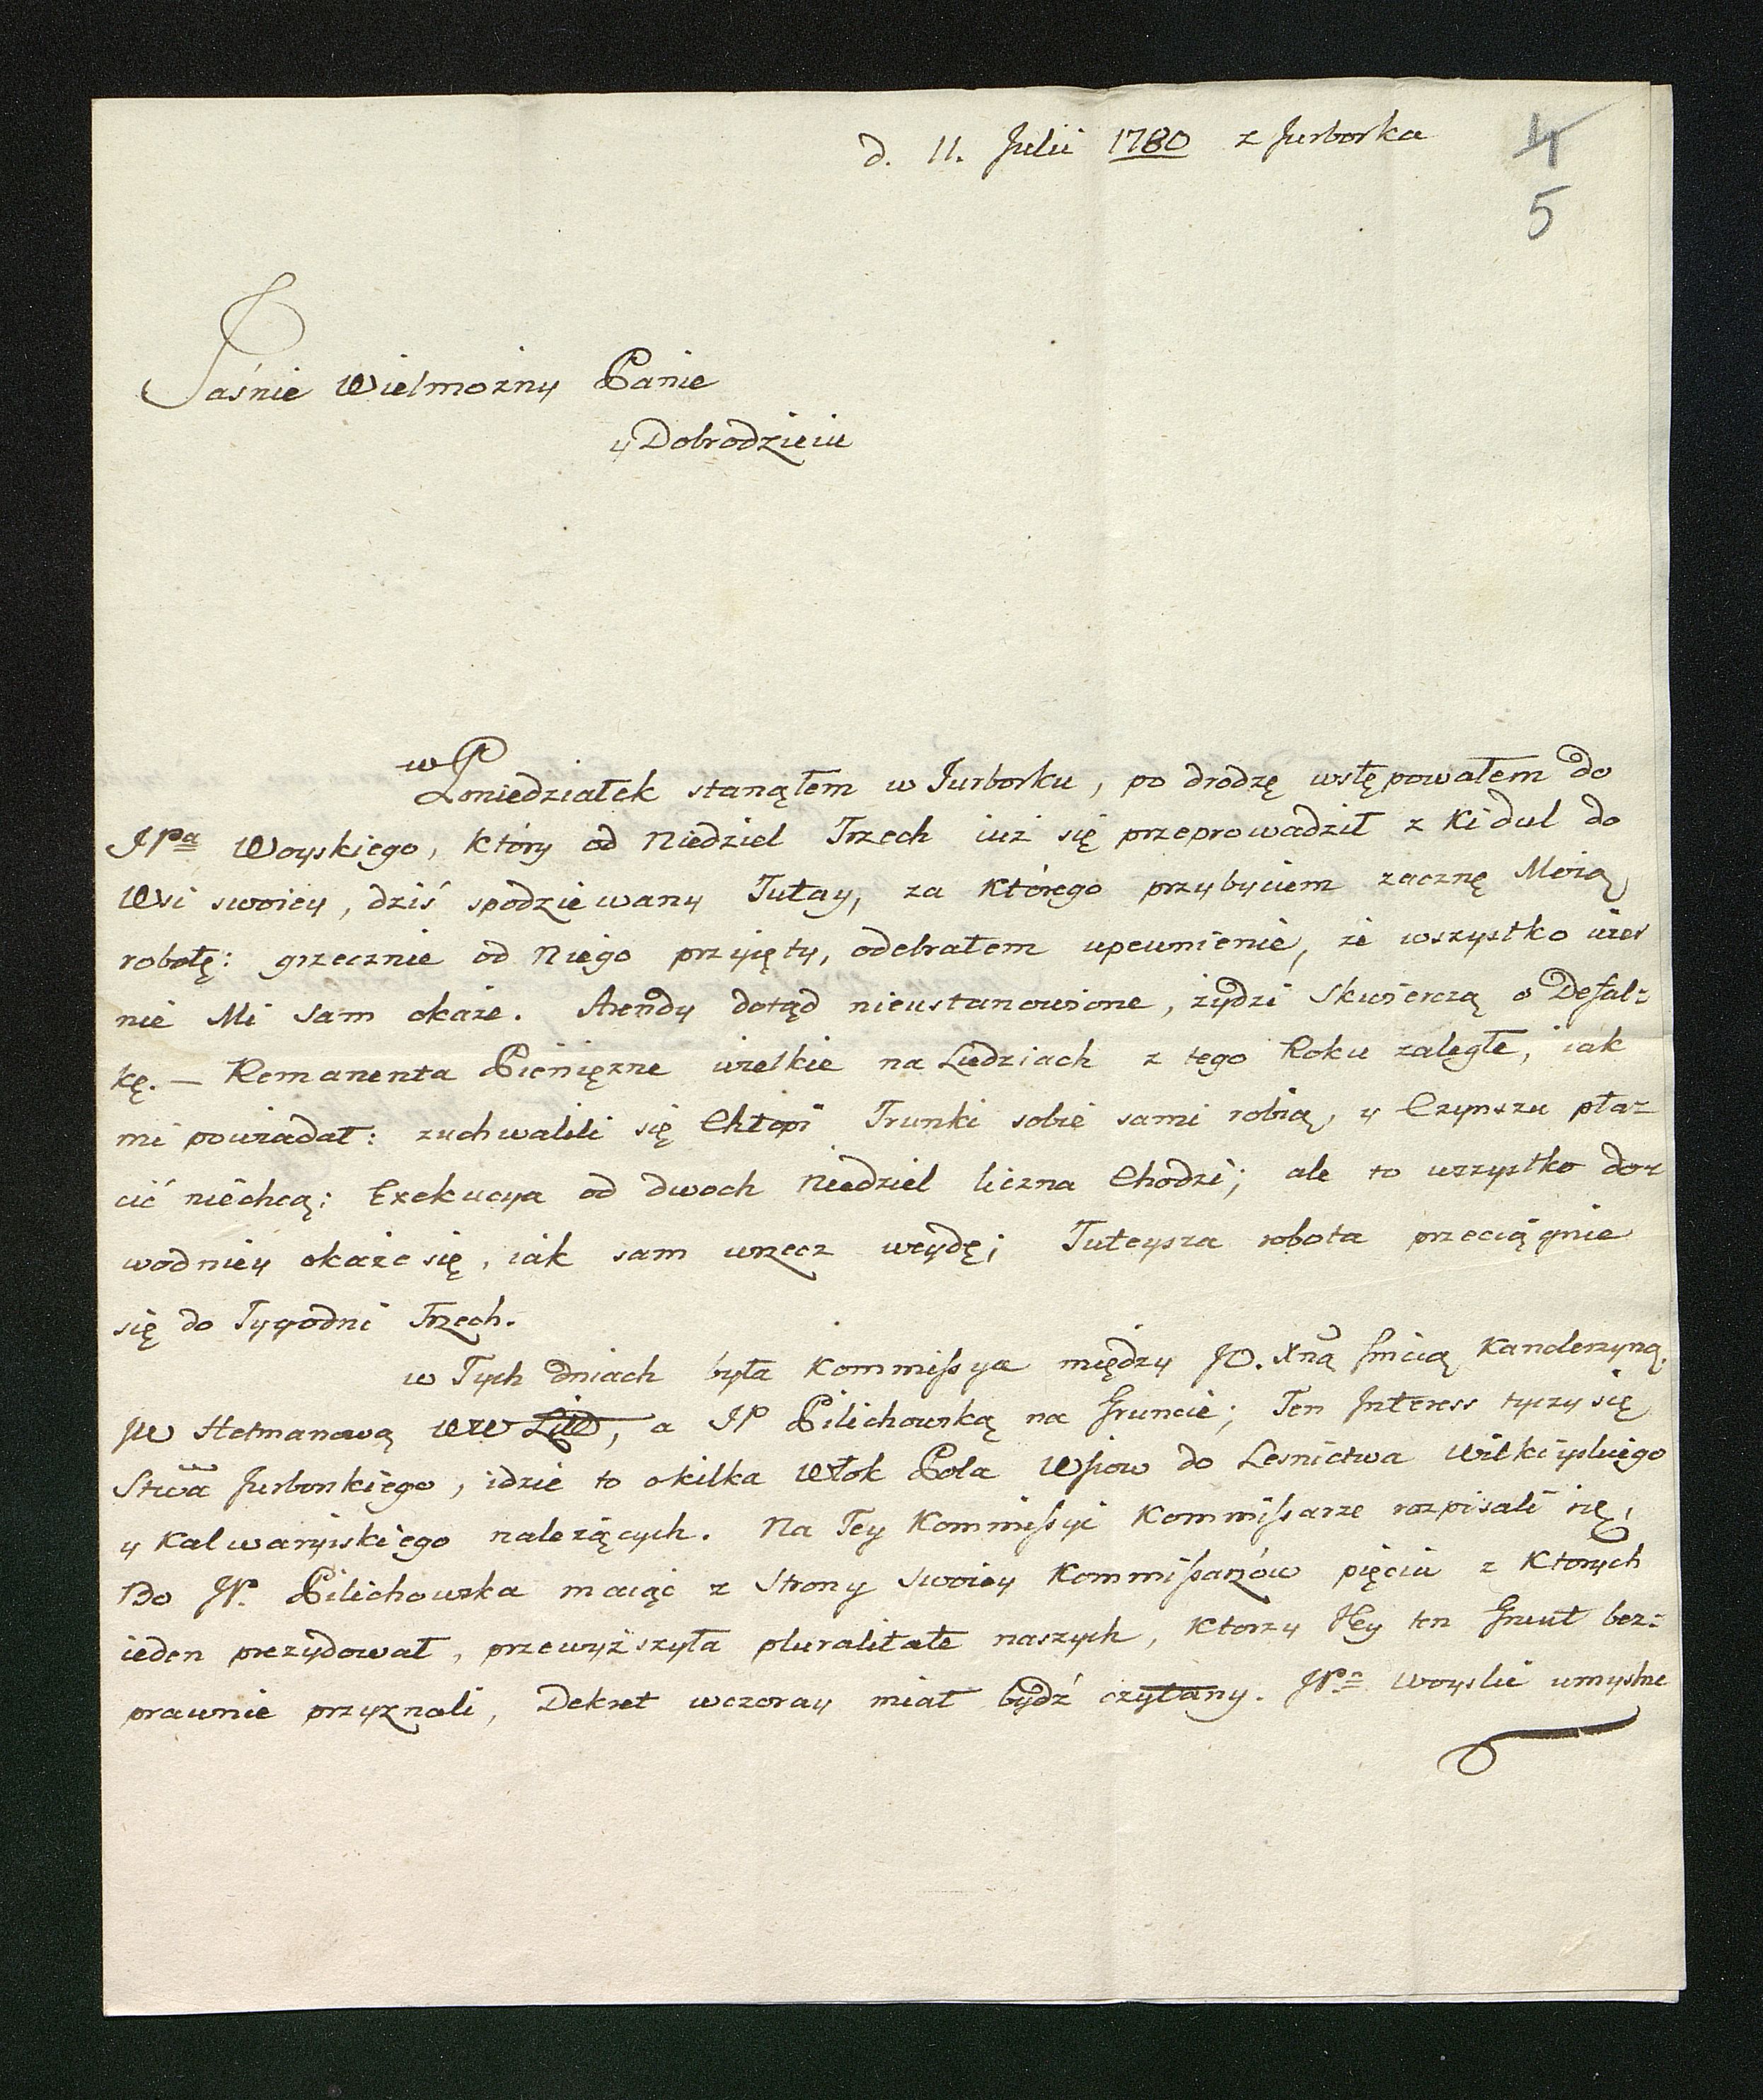 d. 11. Julii 1780 z Jurborka
4
5
Jaśnie Wielmożny Panie
y Dobrodzieiu
w Poniedziałek stanąłem w Jurborku, po drodzę wstępowałem do
JPa Woyskiego, który od Niedziel Trzech iuż się przeprowadził z Kidul do
Wsi swoiey, dziś spodziewany Tutay, za którego przybyciem zacznę Moią
robotę: grzecznie od Niego przyięty, odebrałem upewnienie, że wszystko wier
nie Mi sam okaże. Arendy dotąd nieustanowione, żydzi skwierczą o Defal:
kę. — Remanenta Pieniężne wielkie na Ludziach z tego Roku zaległe, iak
mi powiadał: zuchwalili się Chłopi Trunki sobie sami robią, y Czynszu pła:
cić niechcą: Exekucya od dwoch Niedziel liczna Chodzi; ale to wszystko do:
wodniey okaże się, iak sam wrzecz weydę; Tuteysza robota przeciągnie
się do Tygodni Trzech.
w Tych dniach była Kommissya między JO. Xną Jmcią Kanclerzyną,
JW Hetmanową WW Litt, a JP Pilichowską na Gruncie; Ten Interess tyczy się
Stwa Jurborskiego, idzie to okilka Włok Pola Wsiow do Lesnictwa Wilkiyskiego
y Kalwaryiskiego należących. Na Tey Kommissyi Kommissarze rozpisali się,
Bo JP. Pilichowska maiąc z Strony swoiey Kommissarzów pięciu z Ktorych
ieden prezydował, przewyższyła pluralitate naszych, Ktorzy Jey ten Grunt bez:
prawnie przyznali, Dekret wczoray miał bydź czytany. JPn Woyski umyslne